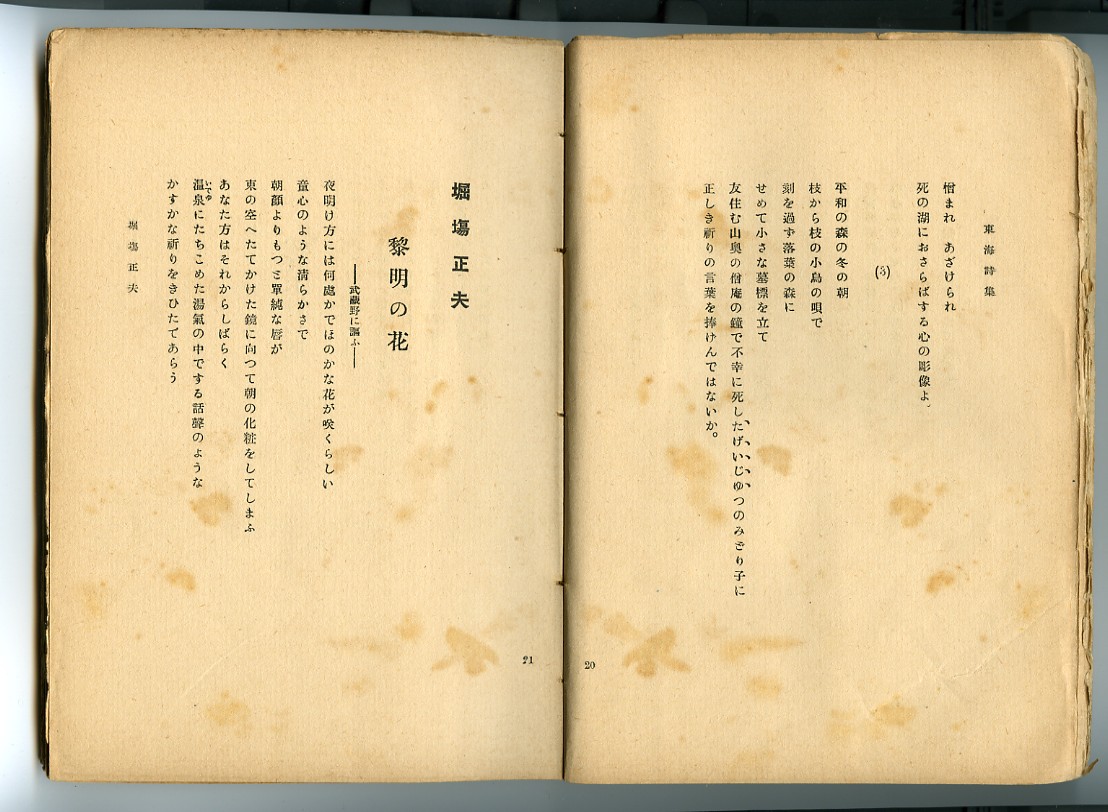 東海詩集
憎まれ　あざけられ
死の湖におさらばする心の彫像よ。
(3)
平和の森の冬の朝
枝から枝の小鳥の唄で
刻を過ず落葉の森に
せめて小さな墓標を立て
友住む山奥の僧庵の鐘で不幸に死したげいじゆつのみどり子に
正しき祈りの言葉を捧げんではないか。
20
堀塲正夫
黎明の花
――武蔵野に謳ふ――
夜明け方には何處かでほのかな花が咲くらしい
童心のような清らかさで
朝顔よりもつと單純な唇が
東の空へたてかけた鏡に向つて朝の化粧をしてしまふ
あなた方はそれからしばらく
温泉にたちこめた湯氣の中でする話聲のような
いでゆ
かすかな祈りをきひたであらう
堀塲正夫
21